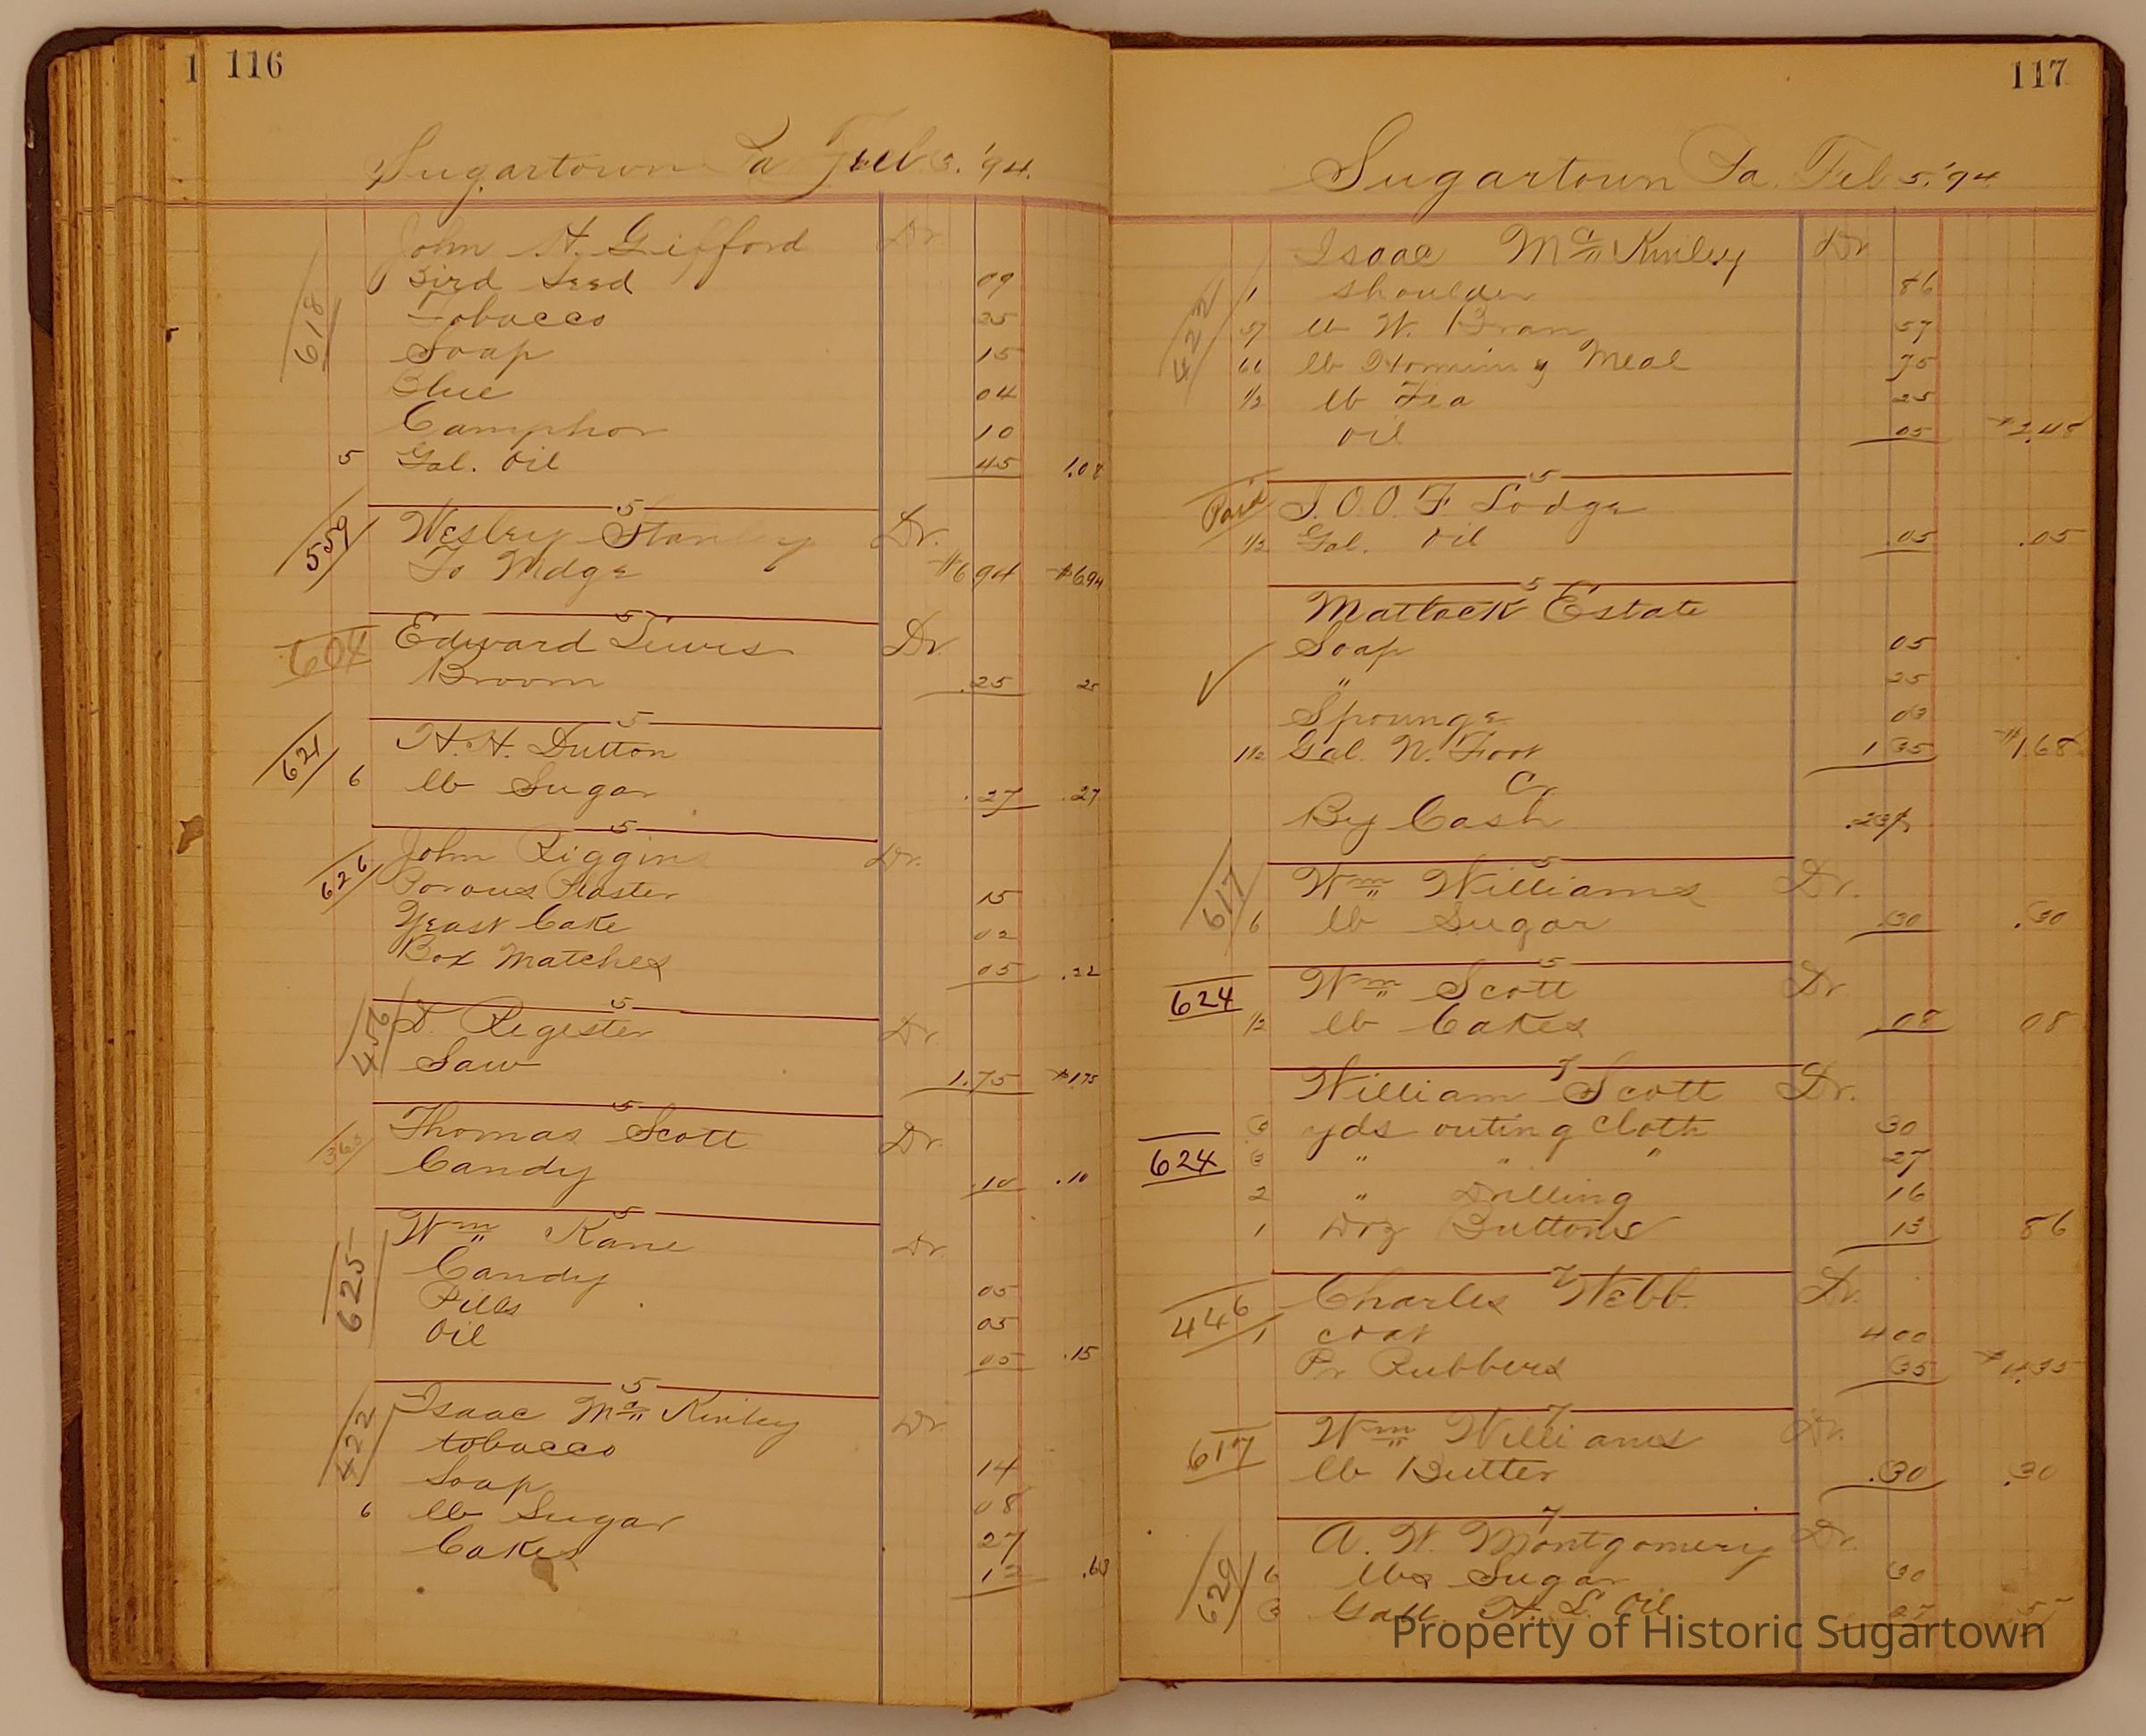 1 116
Sugartown Pa Feb 5. '94.
John H. Gifford Dr
618
Bird Seed 09
Tobacco 25
Soap 15
Blue 04
Camphor 10
5 Gal. Oil 45 1.08
5
559 Wesley Stanley Dr.
To Mdge $6 94 $6.94
5
604 Edward Lewis Dr.
Broom .25 25
5
621 H. H. Dutton
6 lb Sugar .27 .27
5
626 John Riggins Dr.
Porous Plaster 15
Yeast Cake 02
Box Matches 05 .22
5
456 D. Regester Dr.
Saw 1.75 $1.75
5
Thomas Scott Dr.
Candy .10 .10
5
625 Wm Kane Dr.
Candy 05
Pills 05
Oil 05 .15
5
422 Isaac Mc Kinley Dr
tobacco 14
Soap 08
6 lb Sugar 27
Cakes
117
Sugartown Pa. Feb 5. '94
Isaac Mc Kinley Dr
422
1 Shoulder 86
57 lb W. Bran 57
66 lb Hominy Meal 75
1/2 lb Tea 25
Oil 05 $2.48
5
Paid I. O. O. F Lodge
1/2 Gal. Oil .05 .05
5
Matlack Estate
Soap 05
✓ " 25
Spounge 03
1 1/2 Gal. N. Foot 1 35 $1.68
Cr
By Cash
5
617 Wm Williams Dr.
6 lb Sugar .30 .30
5
624 Wm Scott Dr
1/2 lb Cakes .08 08
7
William Scott Dr.
3 yds outing Cloth 30
624 3 " " " 27
2 " Drilling 16
1 Doz Buttons 13 86
7
446 Charles Webb. Dr.
1 coat 4 00
Pr Rubbers 35 $4.35
7
617 Wm Williams Dr.
lb Butter .30 .30
7
629 A. W. Montgomery Dr.
6 lbs Sugar 30
3 Gall. H. L. Oil 27 57
Property of Historic Sugartown